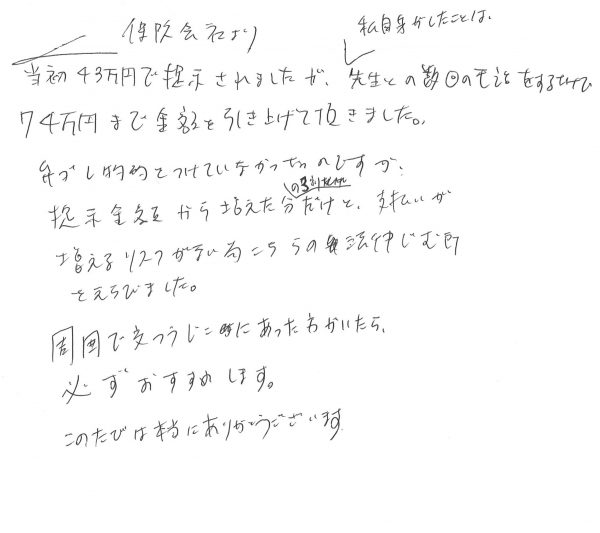 保険会社より
私自身がしたことは、
当初43万円で提示されましたが、先生との数回の電話をするだけで
74万円まで金額を引き上げて頂きました。
弁ごし的をつけていなかったのですが、
の3割
提示金額から増えた分だけと、支払いが
増えるリスクがない為こちらの法律じむ所
をえらびました。
周囲で交つうじこにあった方がいたら、
必ずおすすめします。
このたびは本当にありがとうございます